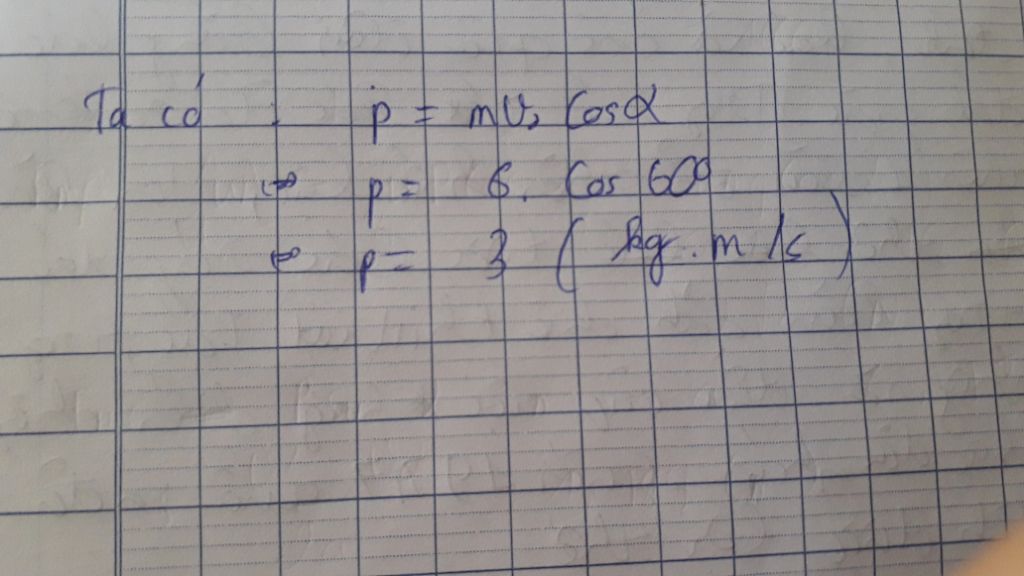 Ta có : p = mv₂ Cosα
⇔ p = 6. Cos 60°
⇔ p = 3 ( kg.m/s )